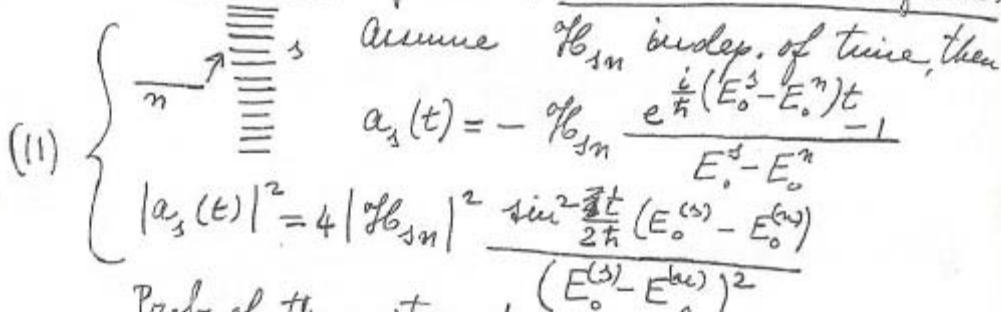 s assume ℋ_sn indep. of time, then
n
(11) a_s(t) = - ℋ_sn (e^{(i/ħ)(E_0^s - E_0^n)t} - 1) / (E_0^s - E_0^n)
|a_s(t)|^2 = 4 |ℋ_sn|^2 (sin^2 (t/2ħ) (E_0^(s) - E_0^(n))) / (E_0^(s) - E_0^(n))^2